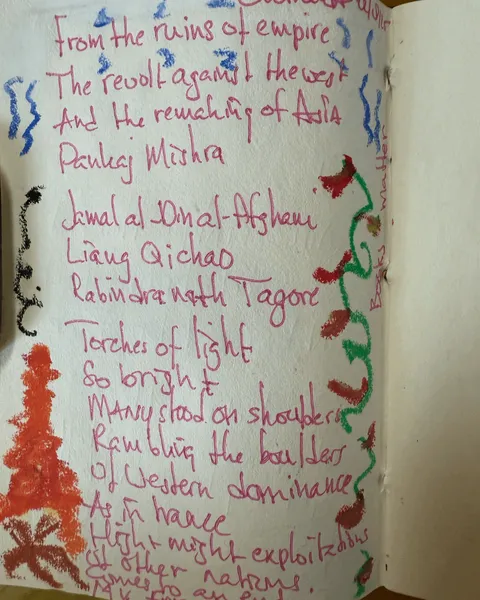 From the ruins of empire
The revolt against the west
And the remaking of Asia
Pankaj Mishra
Jamal al Din al-Afghani
Liang Qichao
Rabindranath Tagore
Torches of light
So bright
Many stood on shoulders
Rambling the boulders
Of Western dominance
As in trance
Flight might exploitations
of other nations.
Comes to an end
matter